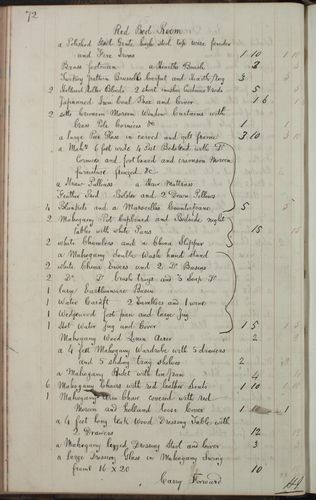 72
Red Bed Room
a Polished Steel Grate high sted top wire fender
and Fire Irons 1 10
Brass footman a Hearth Brush 3
Turkey pattern Brussells Carpet and Hearth Rug 3
2 Holland Roller Blinds 2 short muslin Curtains & rods 5
Japanned Iron Coal Vase and Cover 1 6
2 setts Crimson Moreen Window Curtains with
Brass Pole Cornices &c 1
a large Pier Glass in carved and gilt frame 3 10
a Mahy 6 foot wide 4 Post Bedstead with Do
Cornice and foot board and crimson Moreen
furniture fringed &c
a Straw Palliass a Hair Mattrass
Feather Bed Bolster and 2 Down Pillows
4 Blankets and a Marseilles Counterpane 5
2 Mahogany Pot Cupboard and Bedside night
tables with white Pans 15
2 white Chambers and a China Slipper
a Mahogany double Wash hand Stand
2 white China Ewers and 2 Do Basins
2 Do Do brush trays and 2 Soap Do
1 large Earthenware Basin
1 Water Caraft 2 Tumblers and 1 wine
1 Wedgewood foot pan and large Jug
1 Hot Water Jug and Cover 1 5
Mahogany Wood Linen Airer 2
a 4 feet Mahogany Wardrobe with 5 drawers
and 5 sliding tray shelves 2
a Mahogany Bidet with tin pan 4
6 Mahogany Chairs with red leather Seats 1 10
1 Mahogany arm Chair covered with red
Moreen and Holland loose cover 1
a 4 feet long teak Wood Dressing Table with
2 Drawers 12
a Mahogany legged Dressing Stool and cover 3
a large Dressing Glass in Mahogany Swing
frame 16 x 20 10
Carry Forward